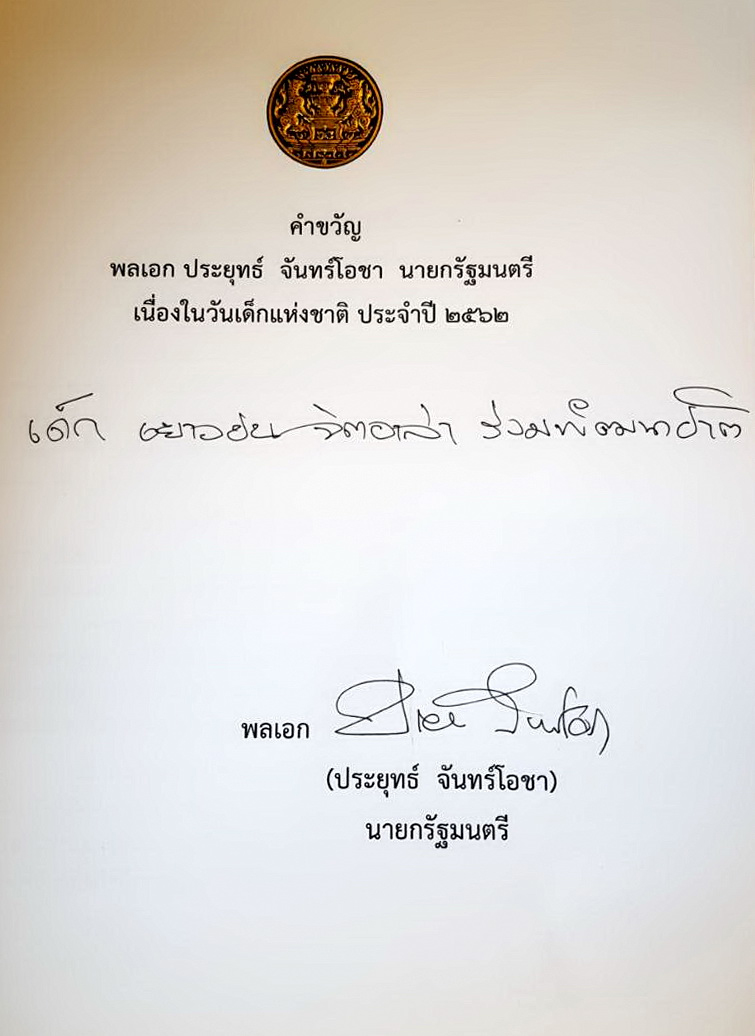 คำขวัญ
พลเอก ประยุทธ์ จันทร์โอชา นายกรัฐมนตรี
เนื่องในวันเด็กแห่งชาติ ประจำปี ๒๕๖๒
เด็ก เยาวชน จิตอาสา ร่วมพัฒนาชาติ
พลเอก
(ประยุทธ์ จันทร์โอชา)
นายกรัฐมนตรี